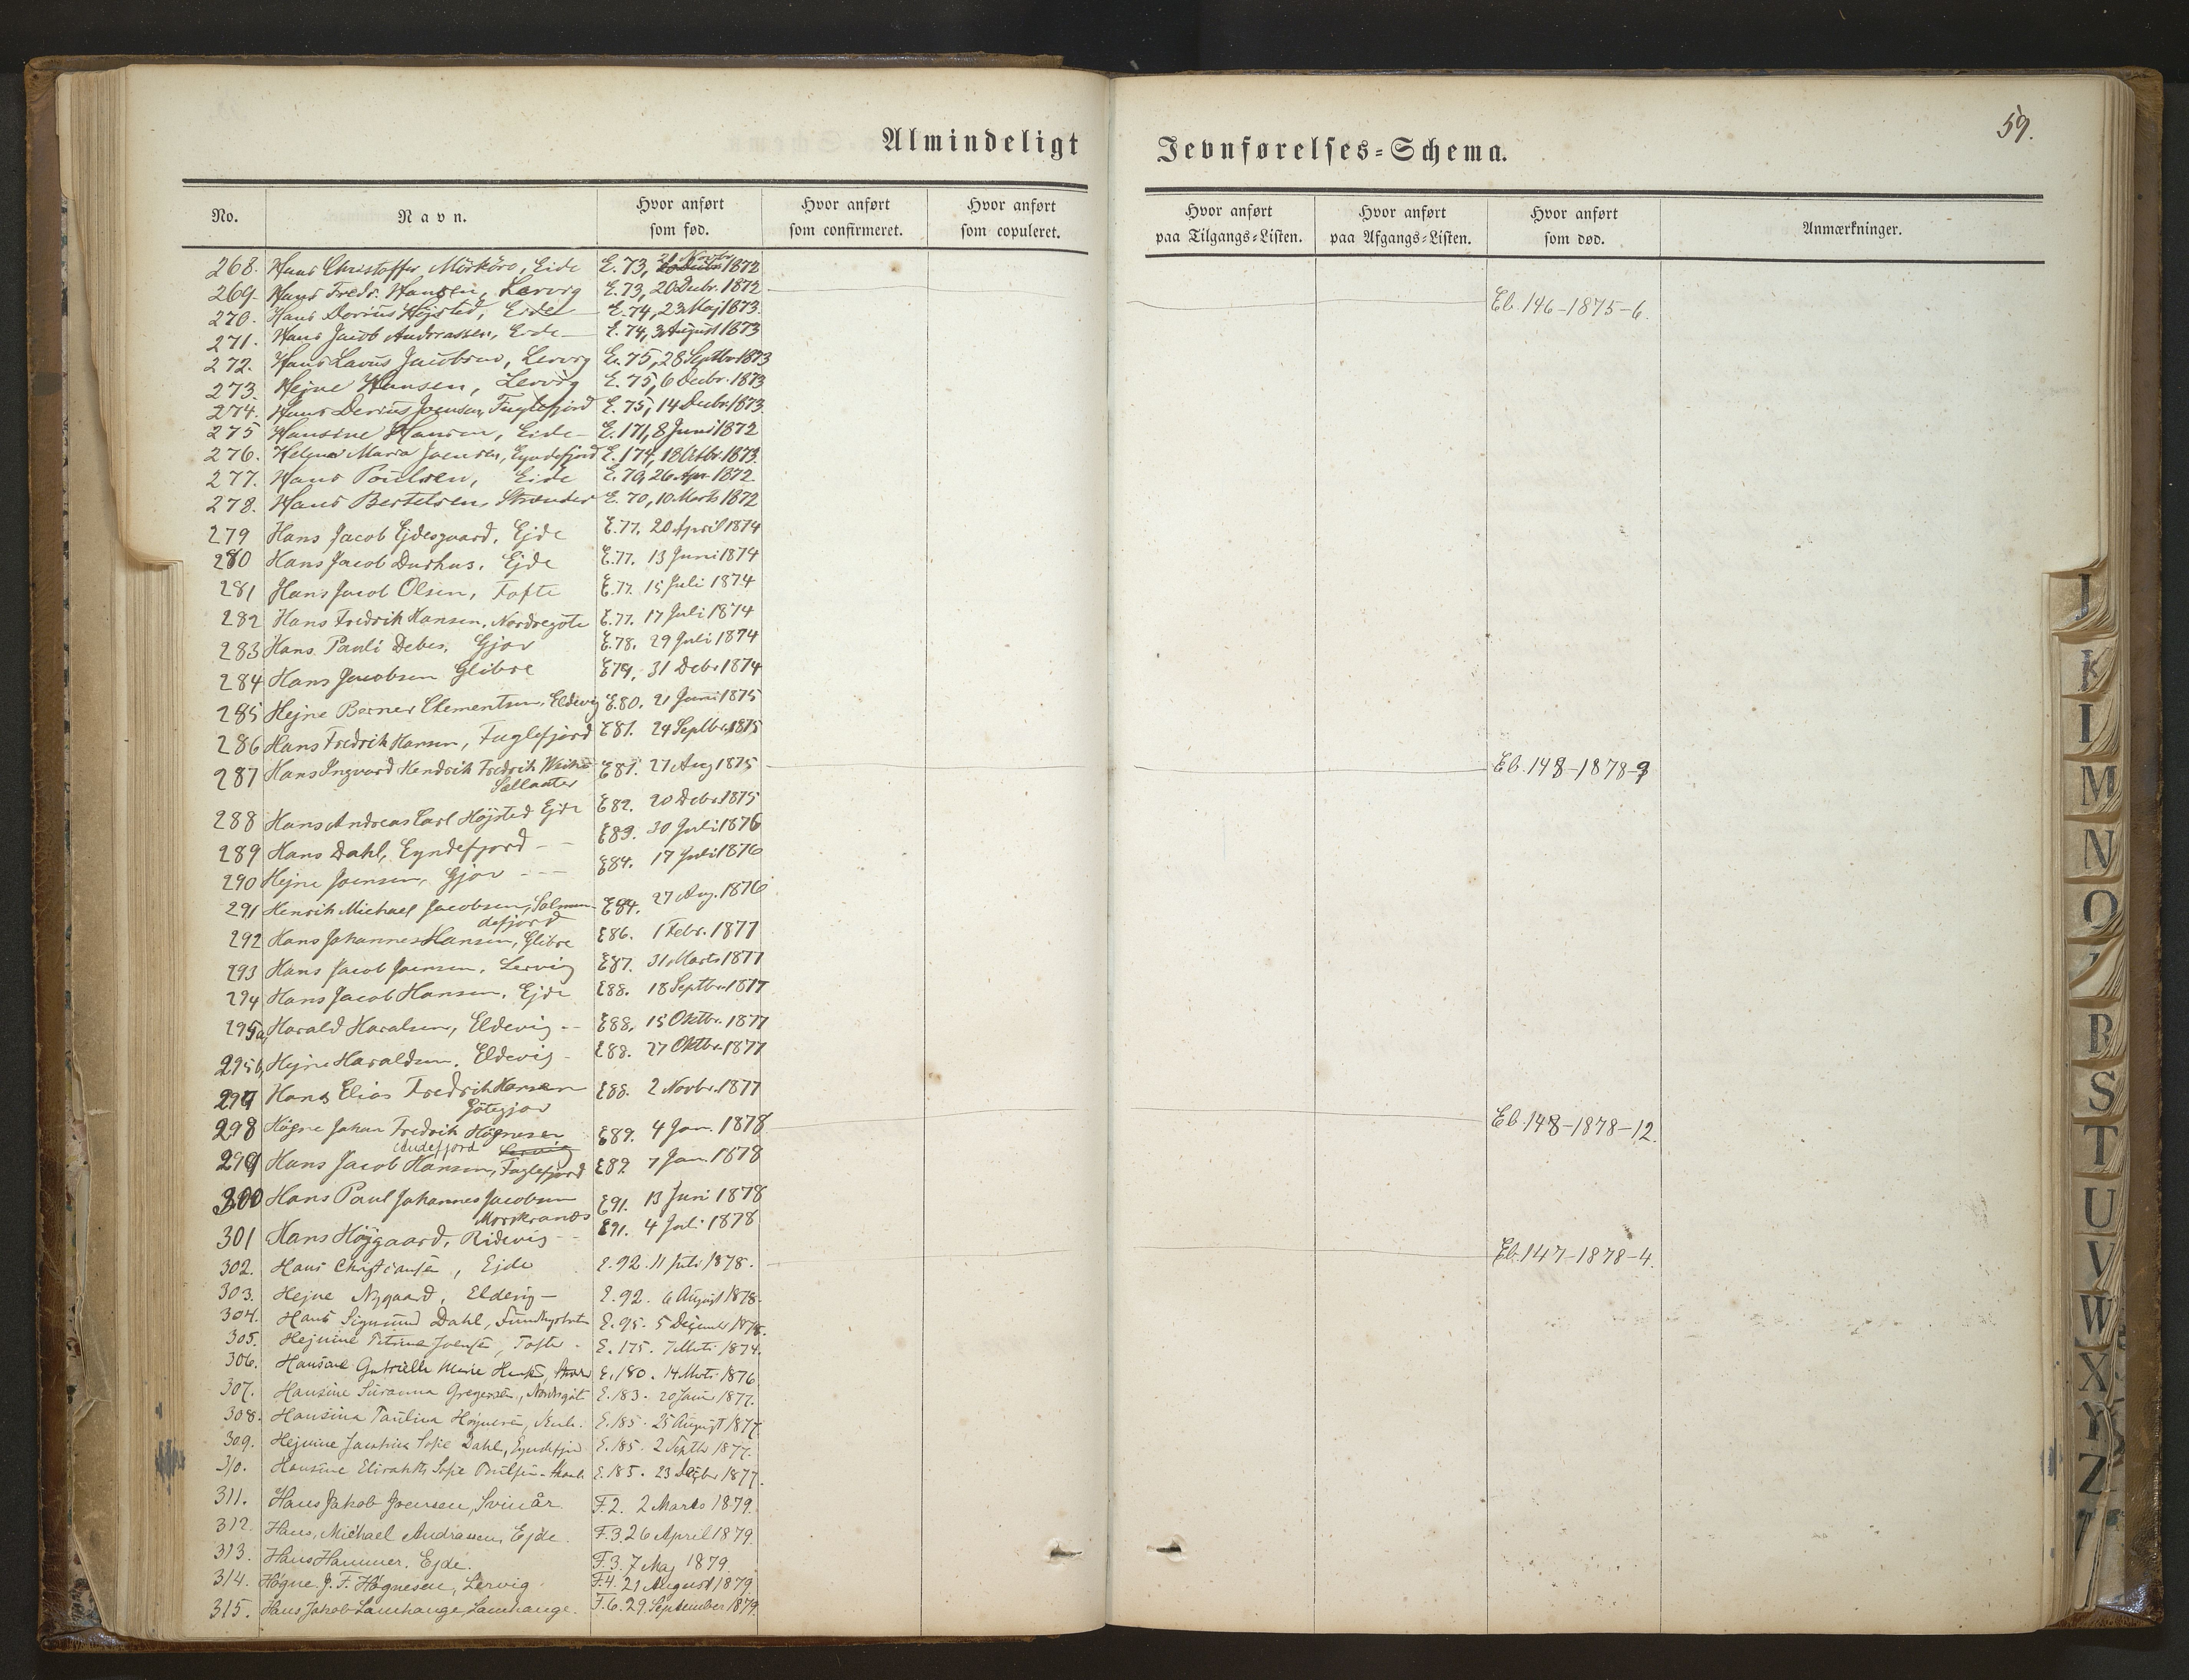 59.
Almindeligt Jevnførelses-Schema.
No. Navn. Hvor anført som fød. Hvor anført som confirmeret. Hvor anført som copuleret. Hvor anført paa Tilgangs-Listen. Hvor anført paa Afgangs-Listen. Hvor anført som død. Anmærkninger.
268. Hans Christoffer Mörköre, Eide E. 73, 21 Novbr 1872
269. Hans Fredr. Hansen, Lervig E. 73, 20 Decbr. 1872 Eb. 146-1875-6.
270. Hans Dorius Højsted, Eide E. 74, 23 Maj 1873.
271. Hans Jacob Andreassen, Eide E. 74, 3 August 1873
272. Hans Lavus Jacobsen, Lervig E. 75, 28 Septbr 1873
273. Hejne Hansen, Lervig E. 75, 6 Decbr. 1873
274. Hans Derius Joensen, Fuglefjord E. 75, 14 Decbr. 1873.
275 Hansine Hansen, Eide E. 171, 8 Juni 1872
276. Helene Maria Joensen, Eyndefjord E. 174, 18 Octbr. 1873.
277. Hans Poulsen, Eide E. 70, 26 Apr. 1872.
278. Hans Bertelsen, Strænder E. 70, 10 Marts 1872
279 Hans Jacob Ejdesgaard, Ejde E. 77. 20 April 1874
280 Hans Jacob Durhus, Ejde E. 77. 13 Juni 1874
281 Hans Jacob Olsen, Tofte E. 77. 15 Juli 1874
282 Hans Fredrik Hansen, Nordregöte E. 77. 17 Juli 1874
283 Hans Pauli Debes, Gjov E. 78. 29 Juli 1874
284 Hans Jacobsen Glibre E 79. 31 Debr 1874
285 Hejne Berner Clementsen, Eldevig E. 80. 21 Juni 1875
286 Hans Fredrik Hansen, Fuglefjord E 81. 24 Septbr. 1875
287 Hans Ingvard Hendrik Fredrik E 81. 27 Aug 1875 Eb. 148-1878-9
Sellaater
288 Hans Andreas Carl Höjsted Ejde E 82. 20 Debr. 1875
289 Hans Dahl, Eyndefjord - - E 83. 30 Juli 1876
290 Hejne Joensen, Gjov - - - E 84. 17 Juli 1876
291 Henrik Michael Jacobsen, Salmun- E 84. 27 Aug. 1876
defjord
292 Hans Johannes Hansen, Glibre E 86. 1 Febr. 1877
293 Hans Jacob Joensen, Lervig E 87. 31 Marts 1877
294 Hans Jacob Hansen, Ejde E 88. 18 Septbr. 1877
295a, Harald Haralsen, Eldevig - - E 88. 15 Oktbr. 1877
295b, Hejne Haraldsen, Eldevig - E 88. 27 Oktbr. 1877
297 Hans Elias Fredrik Hansen E 88. 2 Novbr. 1877
Götegjov
298 Högne Johan Fredrik Högnesen E 89. 4 Jan. 1878 Eb. 148-1878-12.
Andefjord Lervig
299 Hans Jacob Hansen, Fuglefjord E 89 7 Jan. 1878
300 Hans Paul Johannes Jacobsen E 91. 13 Juni 1878
Morskranes
301 Hans Höjgaard, Ridevig - - E 91. 4 Juli 1878
302. Hans Christiansen, Ejde E. 92. 11 Juli 1878. Eb. 147-1878-4.
303. Hejne Nygaard, Eldevig - E. 92. 6 August 1878.
304. Hans Sigmund Dahl, E. 95. 5 December 1878.
305. Hejnine Petrine Joensen, Tofte - E. 175. 7 Marts 1874.
306. Hansine Gabrielle Marie E. 180. 14 Marts 1876
307. Hansine Susanna Gregersen, Nordregöte E. 183. 20 Januar 1877.
308. Hansina Paulina Högnesen, E. 185. 25 August 1877
309. Hejnine Jacobine Sofie Dahl, Eyndefjord E. 185. 2 Septbr 1877.
310. Hansine Elisabeth Sofie Poulsen - E. 185. 23 Decbr 1877.
311. Hans Jakob Joensen, Svinår. F. 2. 2 Marts 1879.
312. Hans, Michael Andreasen, Ejde. F. 3. 26 April 1879
313. Hans Hammer, Ejde. F. 3. 7 Maj 1879.
314. Högne J. F. Högnesen, Lervig. F. 4. 21 August 1879
315. Hans Jakob Lamhauge, Lamhauge. F. 6. 29 September 1879.
J
K
L
M
N
O
R
S
T
U
V
W
X
Y
Z